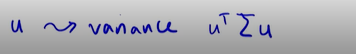 u ⇝ variance uᵀΣu